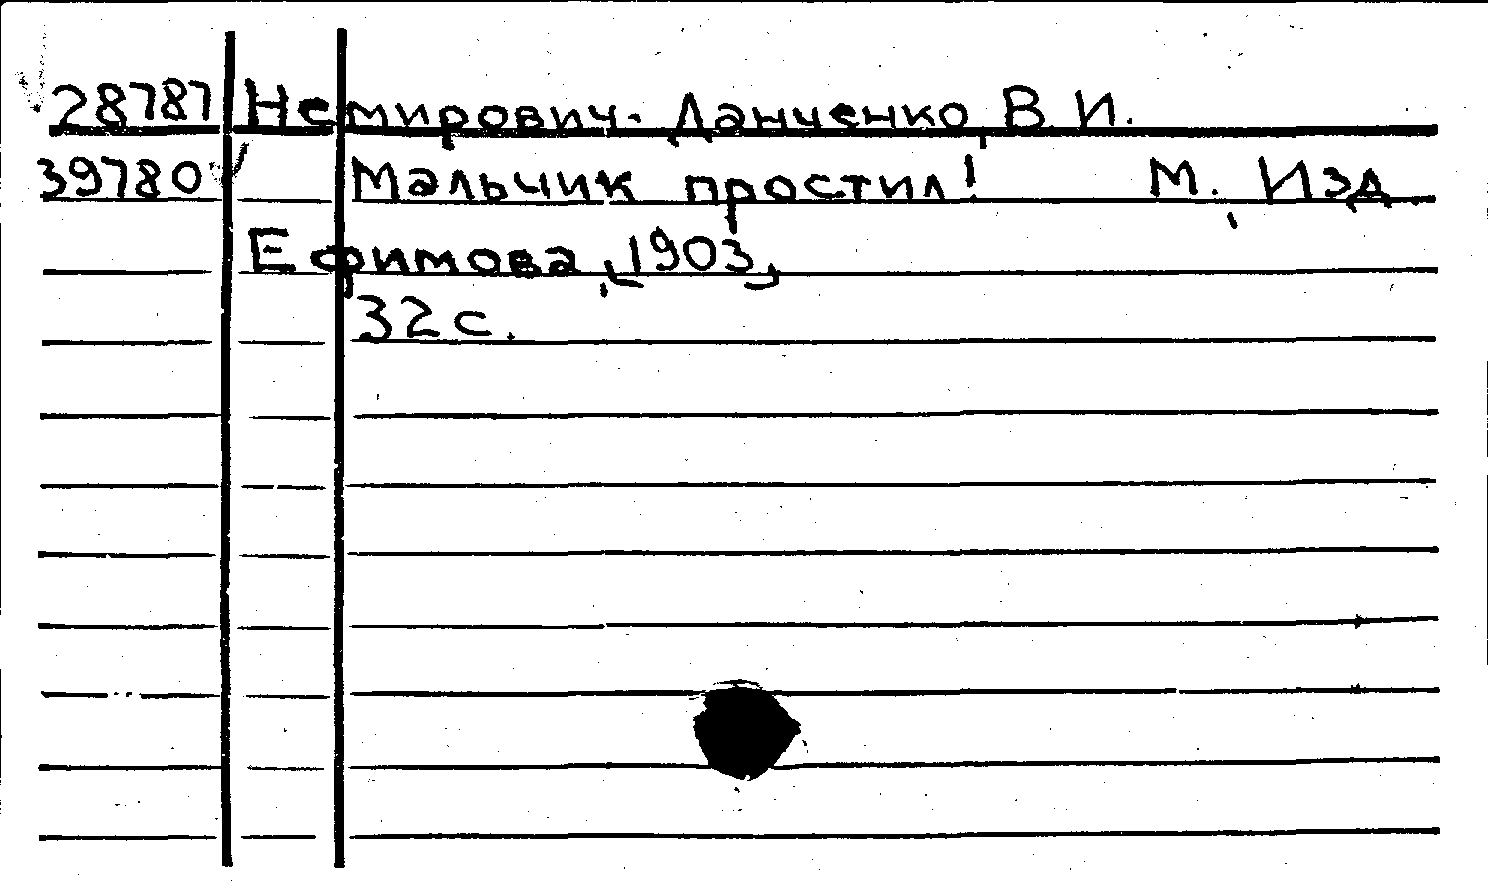 28787 Немирович-Данченко, В. И.
39780 Мальчик простил! М., Изд
Ефимова, 1903,
32 с.